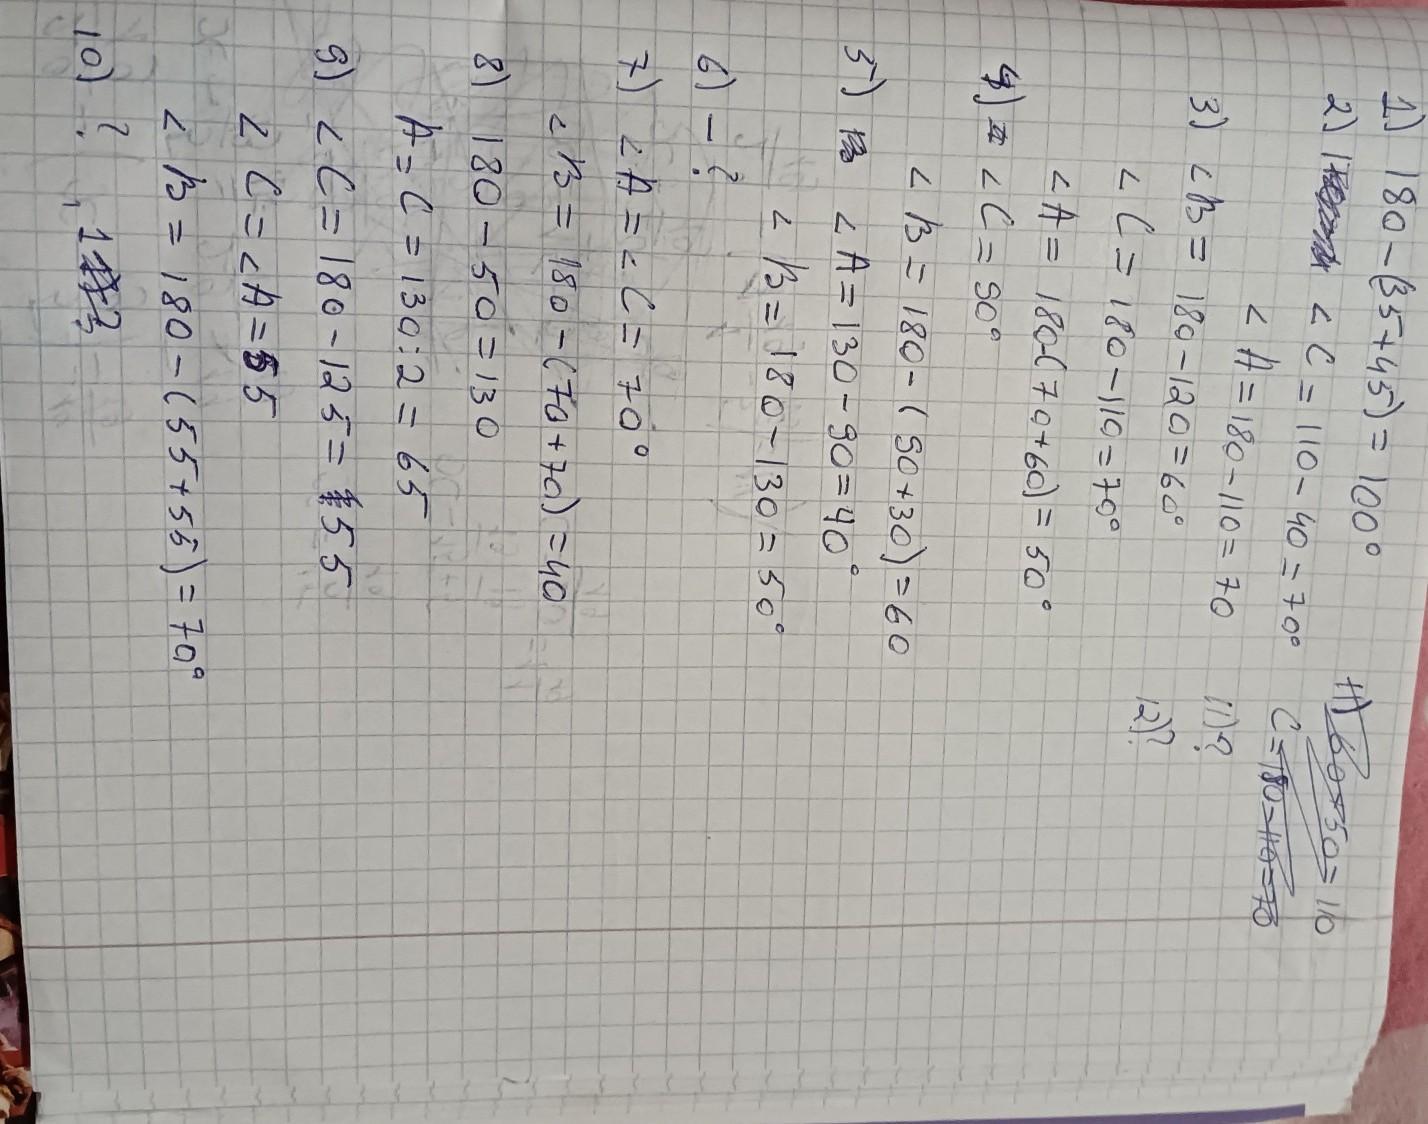 1) 180-(35+45)=100°
2) ∠C=110-40=70°
∠A=180-110=70
3) ∠B=180-120=60°
∠C=180-110=70°
∠A=180-(70+60)=50°
4) ∠C=90°
∠B=180-(90+30)=60
5) ∠A=130-90=40°
∠B=180-130=50°
6) -?
7) ∠A=∠C=70°
∠B=180-(70+70)=40
8) 180-50=130
A=C=130:2=65
9) ∠C=180-125=55
∠C=∠A=55
∠B=180-(55+55)=70°
10) ?
11) 60+50=110
C=180-110=70
11)?
12)?